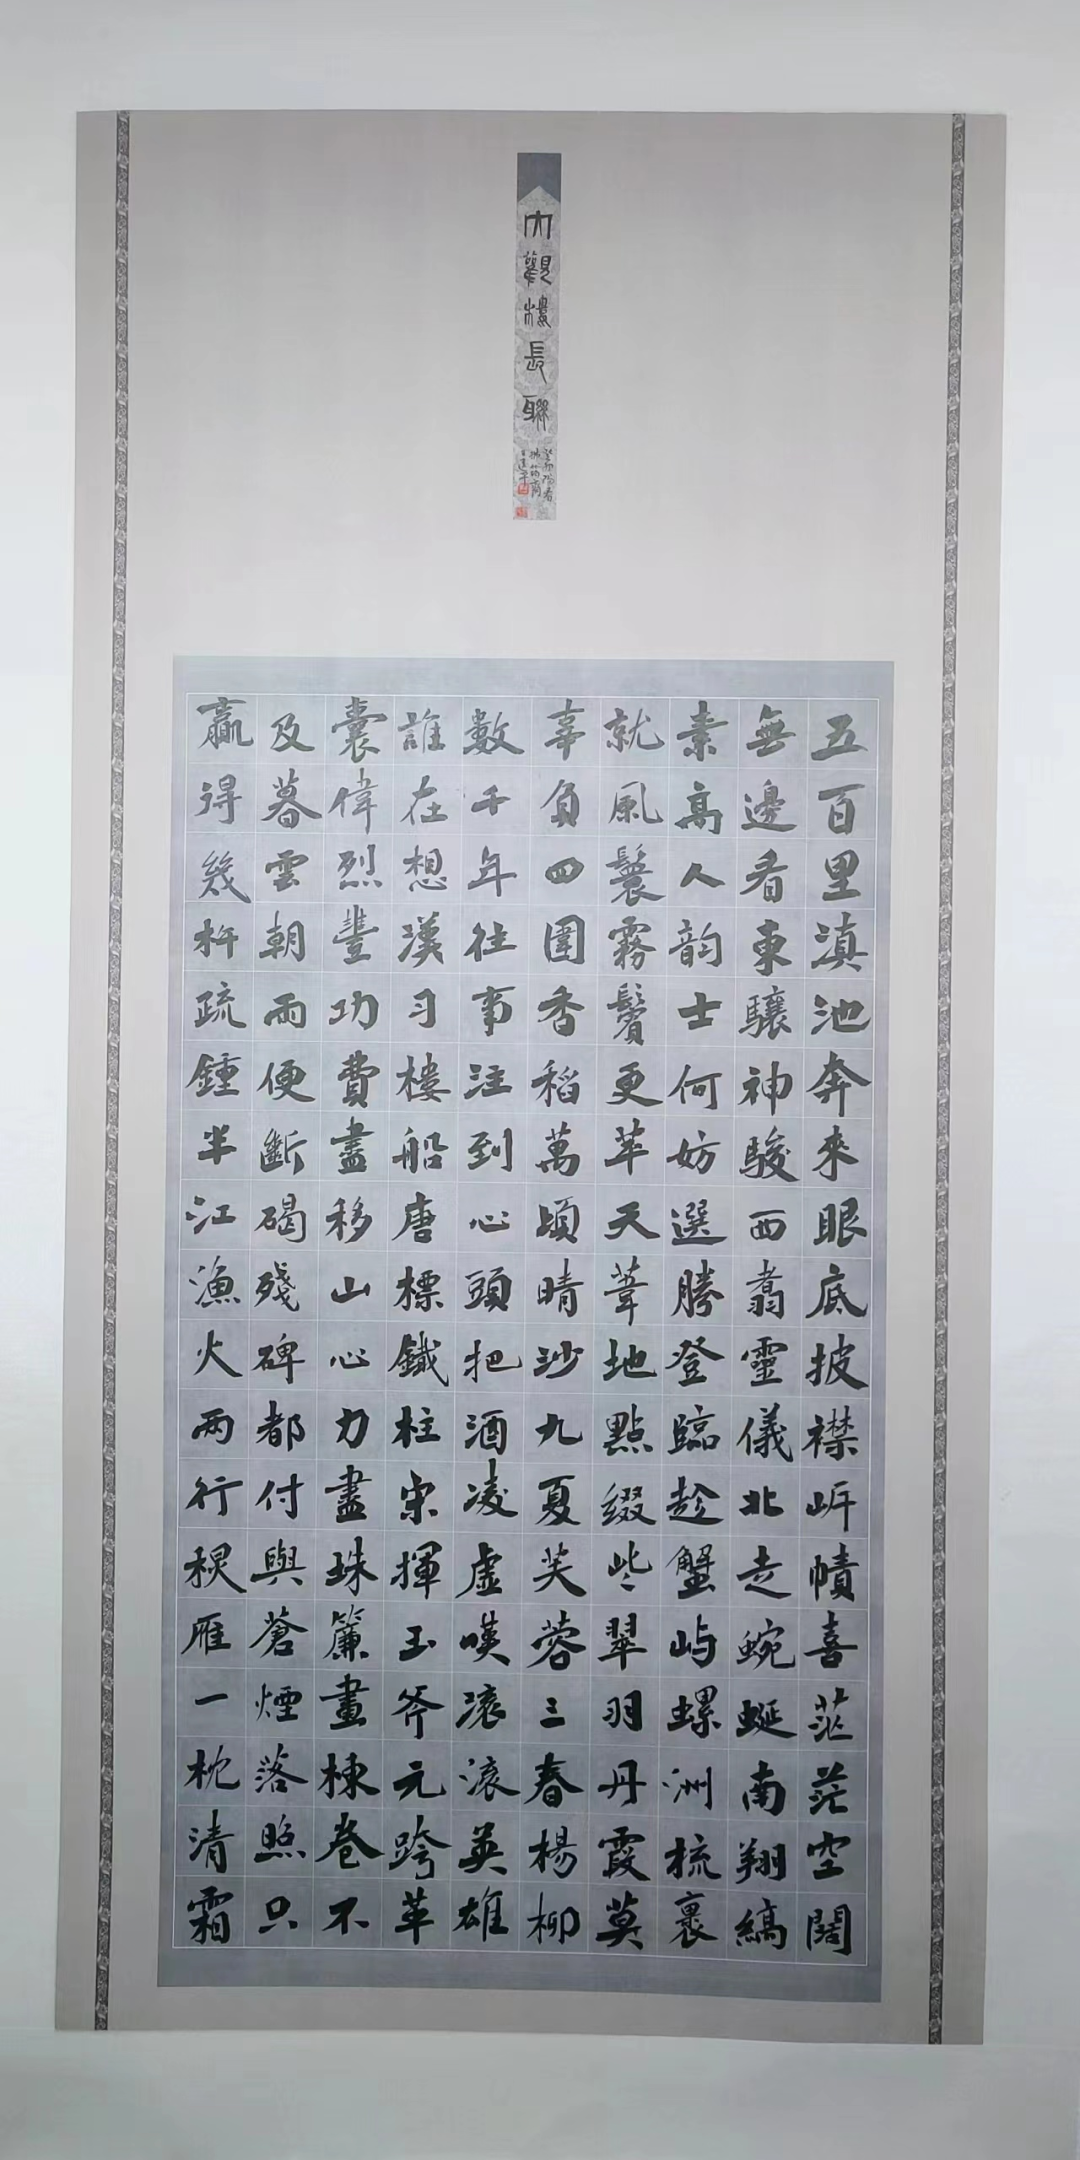 大觀樓長聯
癸卯
五百里滇池奔來眼底披襟岸幘喜茫茫空闊
無邊看東驤神駿西翥靈儀北走蜿蜒南翔縞
素高人韵士何妨選勝登臨趁蟹屿螺洲梳裹
就風鬟霧鬢更苹天葦地點綴些翠羽丹霞莫
辜負四圍香稻萬頃晴沙九夏芙蓉三春楊柳
數千年往事注到心頭把酒凌虛嘆滾滾英雄
誰在想漢习樓船唐標鐵柱宋揮玉斧元跨革
囊偉烈豐功費盡移山心力盡珠簾畫棟卷不
及暮雲朝雨便斷碣殘碑都付與蒼煙落照只
贏得幾杵疏鍾半江漁火兩行秋雁一枕清霜